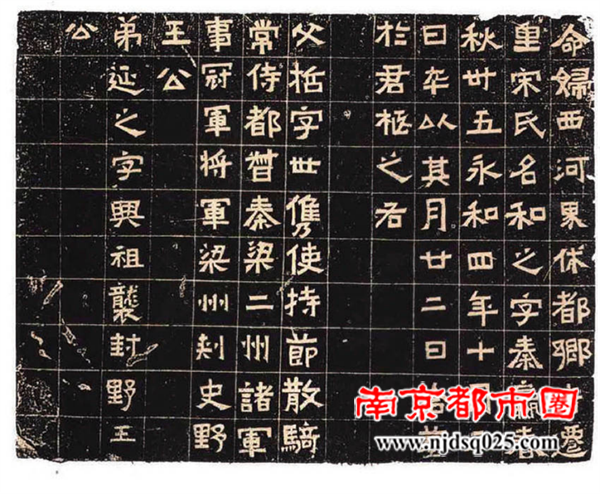 命婦西河界休都鄉遷
里宋氏名和之字秦春
秋卅五永和四年十月
日卒以其月廿二日葬
於君柩之右
父哲字世儁使持節散騎
常侍都督秦梁二州諸軍
事冠軍將軍梁州刺史野
王公
弟延之字興祖襲封野王
公
南京都市圈
www.njdsq025.com